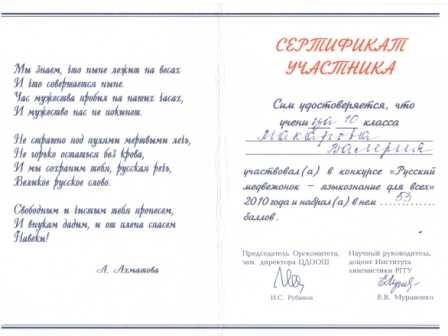 Мы знаем, что ныне лежит на весах
И что совершается ныне.
Час мужества пробил на наших часах,
И мужество нас не покинет.
Не страшно под пулями мертвыми лечь,
Не горько остаться без крова,
И мы сохраним тебя, русская речь,
Великое русское слово.
Свободным и чистым тебя пронесем,
И внукам дадим, и от плена спасем
Навеки!
А. Ахматова
СЕРТИФИКАТ
УЧАСТНИКА
Сим удостоверяется, что
учени ца 10 класса
Макарова
Валерия
участвовал(а) в конкурсе «Русский
медвежонок – языкознание для всех»
2010 года и набрал(а) в нем 53
баллов.
Председатель Оргкомитета,
зам. директора ЦДООШ
И.С. Рубанов
Научный руководитель,
доцент Института
лингвистики РГГУ
Е.В. Муравенко